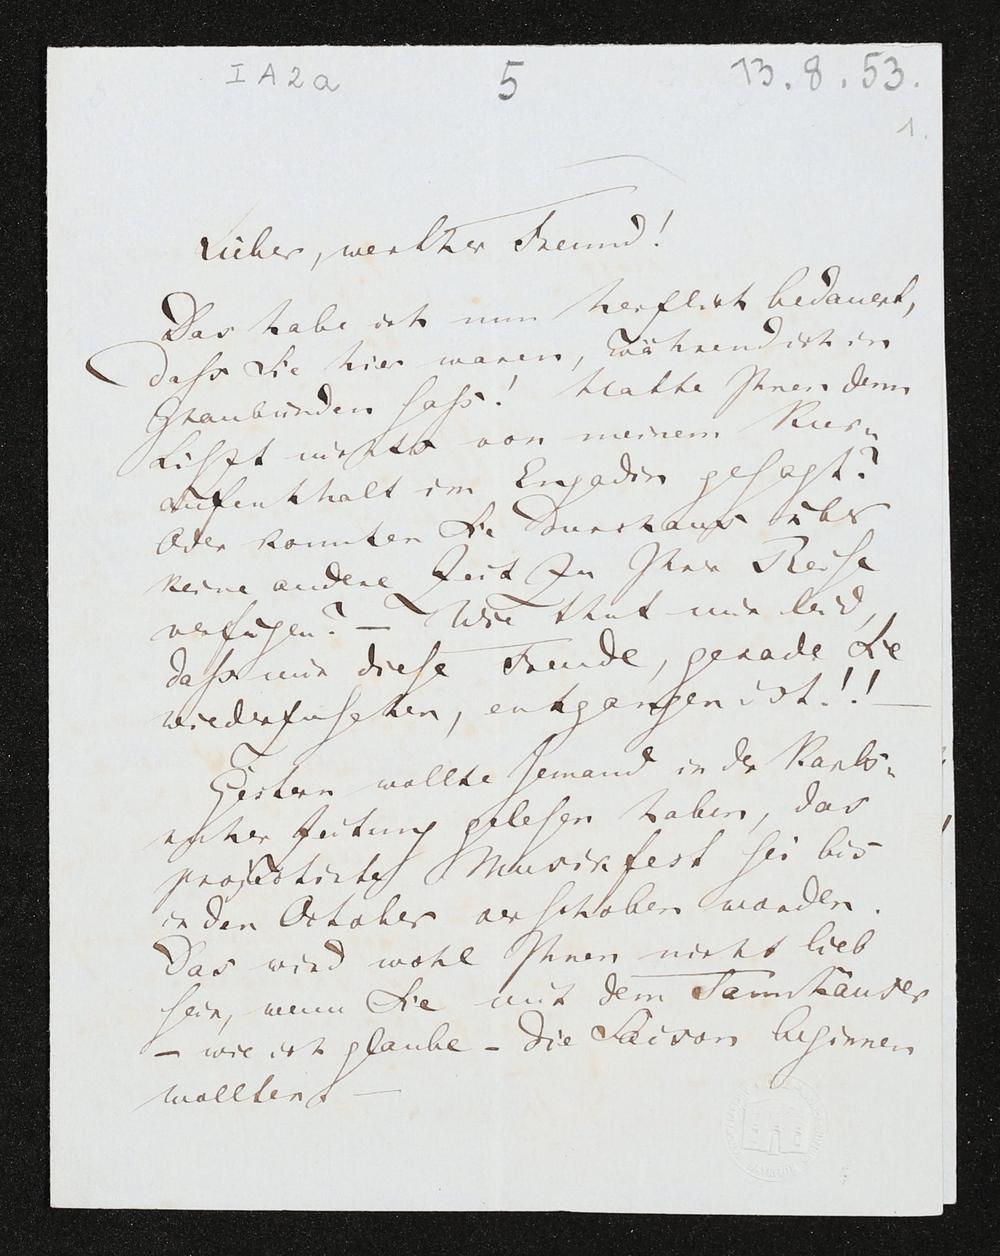 I A 2 a 5 13.8.53.
1.
Lieber, werther Freund!
Das habe ich nun herzlich bedauert,
dass Sie hier waren, während ich in
Graubünden sass! Hatte Ihnen denn
Liszt nichts von meinem Kur-
aufenthalt im Engadin gesagt?
Oder konnten Sie durchaus über
keine andere Zeit zu Ihrer Reise
verfügen? — Wie thut mir leid,
dass mir diese Freude, gerade Sie
wiederzusehen, entgangen ist!! —
Gestern wollte Jemand in der Karls-
ruher Zeitung gelesen haben, das
projectirte Musikfest sei bis
in den October verschoben worden.
Das wird wohl Ihnen nicht lieb
sein, wenn Sie mit dem Tannhäuser
— wie ich glaube — die Saison beginnen
wollten? —